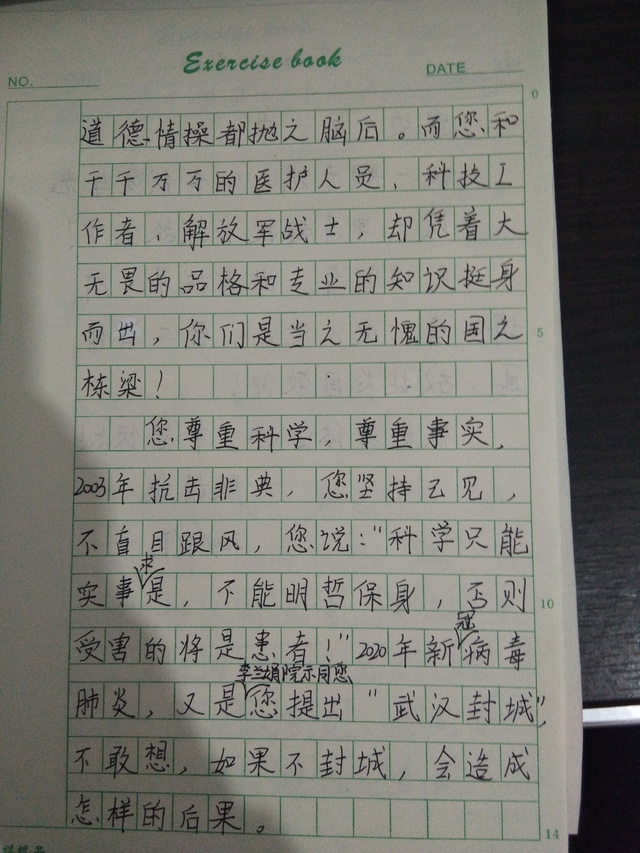 Exercise book
NO.
DATE
0
道德情操都抛之脑后。而您和
千千万万的医护人员、科技工
作者、解放军战士，却凭着大
无畏的品格和专业的知识挺身
而出，你们是当之无愧的国之
5
栋梁！
您尊重科学，尊重事实，
2003年抗击非典，您坚持己见，
不盲目跟风，您说：“科学只能
求
实事是，不能明哲保身，否则
10
冠
受害的将是患者！”2020年新病毒
李兰娟院示同您
肺炎，又是您提出“武汉封城”，
不敢想，如果不封城，会造成
怎样的后果。
14